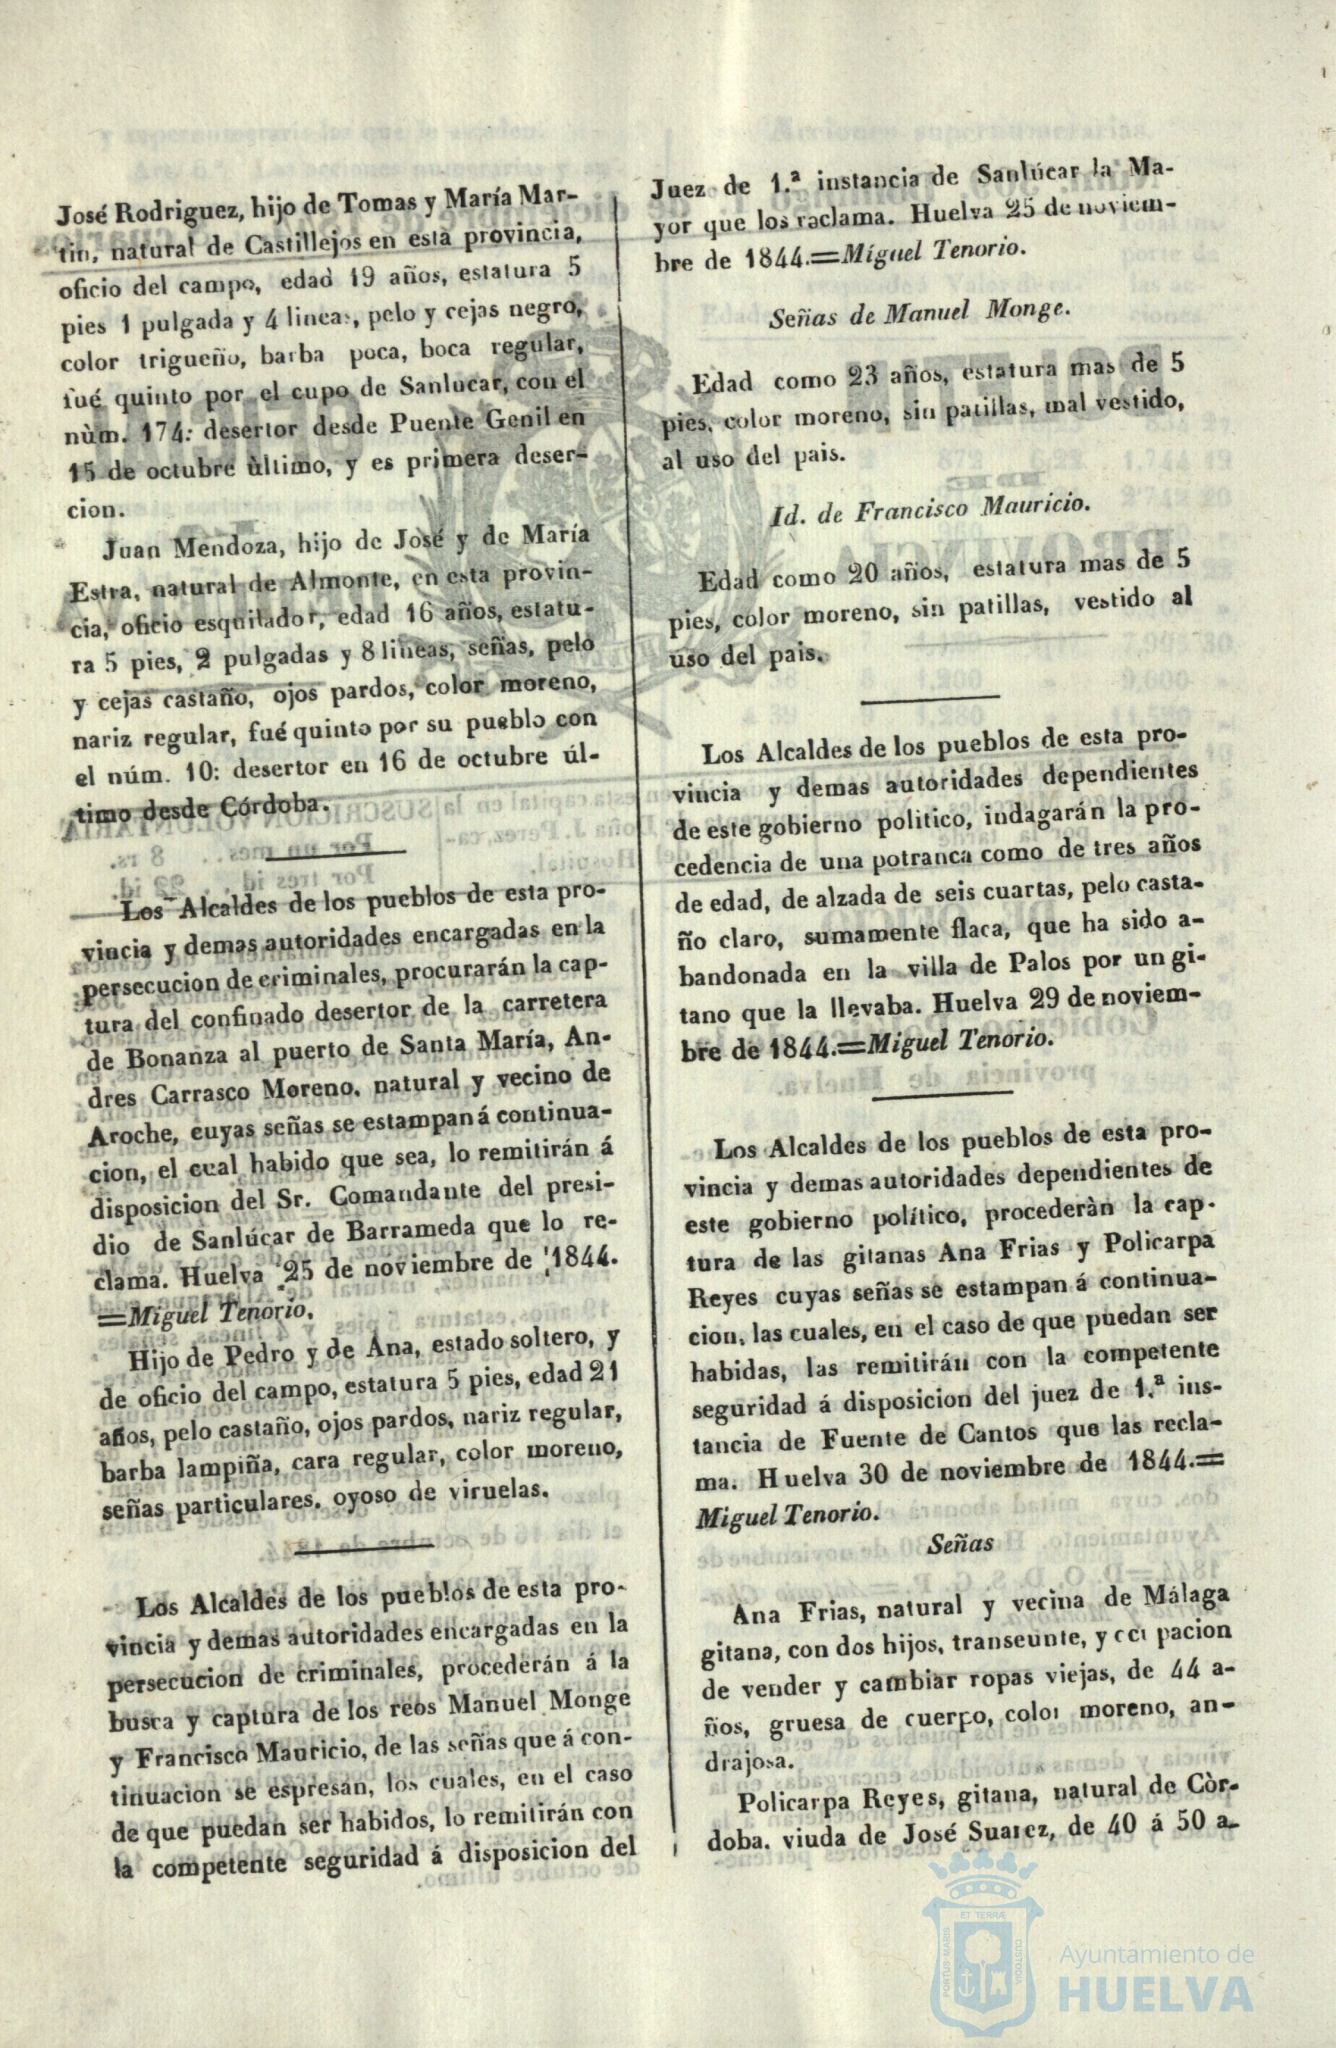 José Rodriguez, hijo de Tomas y María Mar-
tin, natural de Castillejos en esta provincia,
oficio del campo, edad 19 años, estatura 5
pies 1 pulgada y 4 lineas, pelo y cejas negro,
color trigueño, barba poca, boca regular,
fué quinto por el cupo de Sanlucar, con el
nùm. 174: desertor desde Puente Genil en
15 de octubre ùltimo, y es primera deser-
cion.
Juan Mendoza, hijo de José y de María
Estra, natural de Almonte, en esta provin-
cia, oficio esquilador, edad 16 años, estatu-
ra 5 pies, 2 pulgadas y 8 lineas, señas, pelo
y cejas castaño, ojos pardos, color moreno,
nariz regular, fué quinto por su pueblo con
el núm. 10: desertor en 16 de octubre úl-
timo desde Córdoba.
Los Alcaldes de los pueblos de esta pro-
vincia y demas autoridades encargadas en la
persecucion de criminales, procurarán la cap-
tura del confinado desertor de la carretera
de Bonanza al puerto de Santa María, An-
dres Carrasco Moreno, natural y vecino de
Aroche, cuyas señas se estampan á continua-
cion, el cual habido que sea, lo remitirán á
disposicion del Sr. Comandante del presi-
dio de Sanlúcar de Barrameda que lo re-
clama. Huelva 25 de noviembre de 1844.
=Miguel Tenorio.
Hijo de Pedro y de Ana, estado soltero, y
de oficio del campo, estatura 5 pies, edad 21
años, pelo castaño, ojos pardos, nariz regular,
barba lampiña, cara regular, color moreno,
señas particulares. oyoso de viruelas.
Los Alcaldes de los pueblos de esta pro-
vincia y demas autoridades encargadas en la
persecucion de criminales, procederán á la
busca y captura de los reos Manuel Monge
y Francisco Mauricio, de las señas que á con-
tinuacion se espresan, los cuales, en el caso
de que puedan ser habidos, lo remitirán con
la competente seguridad á disposicion del
Juez de 1.ª instancia de Sanlúcar la Ma-
yor que los reclama. Huelva 25 de noviem-
bre de 1844.=Miguel Tenorio.
Señas de Manuel Monge.
Edad como 23 años, estatura mas de 5
pies, color moreno, sin patillas, mal vestido,
al uso del pais.
Id. de Francisco Mauricio.
Edad como 20 años, estatura mas de 5
pies, color moreno, sin patillas, vestido al
uso del pais.
Los Alcaldes de los pueblos de esta pro-
vincia y demas autoridades dependientes
de este gobierno politico, indagarán la pro-
cedencia de una potranca como de tres años
de edad, de alzada de seis cuartas, pelo casta-
ño claro, sumamente flaca, que ha sido a-
bandonada en la villa de Palos por un gi-
tano que la llevaba. Huelva 29 de noviem-
bre de 1844.=Miguel Tenorio.
Los Alcaldes de los pueblos de esta pro-
vincia y demas autoridades dependientes de
este gobierno político, procederàn la cap-
tura de las gitanas Ana Frias y Policarpa
Reyes cuyas señas se estampan á continua-
cion, las cuales, en el caso de que puedan ser
habidas, las remitirán con la competente
seguridad á disposicion del juez de 1.ª ins-
tancia de Fuente de Cantos que las recla-
ma. Huelva 30 de noviembre de 1844.=
Miguel Tenorio.
Señas
Ana Frias, natural y vecina de Málaga
gitana, con dos hijos, transeunte, y ocupacion
de vender y cambiar ropas viejas, de 44 a-
ños, gruesa de cuerpo, color moreno, an-
drajosa.
Policarpa Reyes, gitana, natural de Còr-
doba. viuda de José Suarez, de 40 á 50 a-
ET TERRÆ
PORTUS MARIS
CUSTODIA
Ayuntamiento de
HUELVA